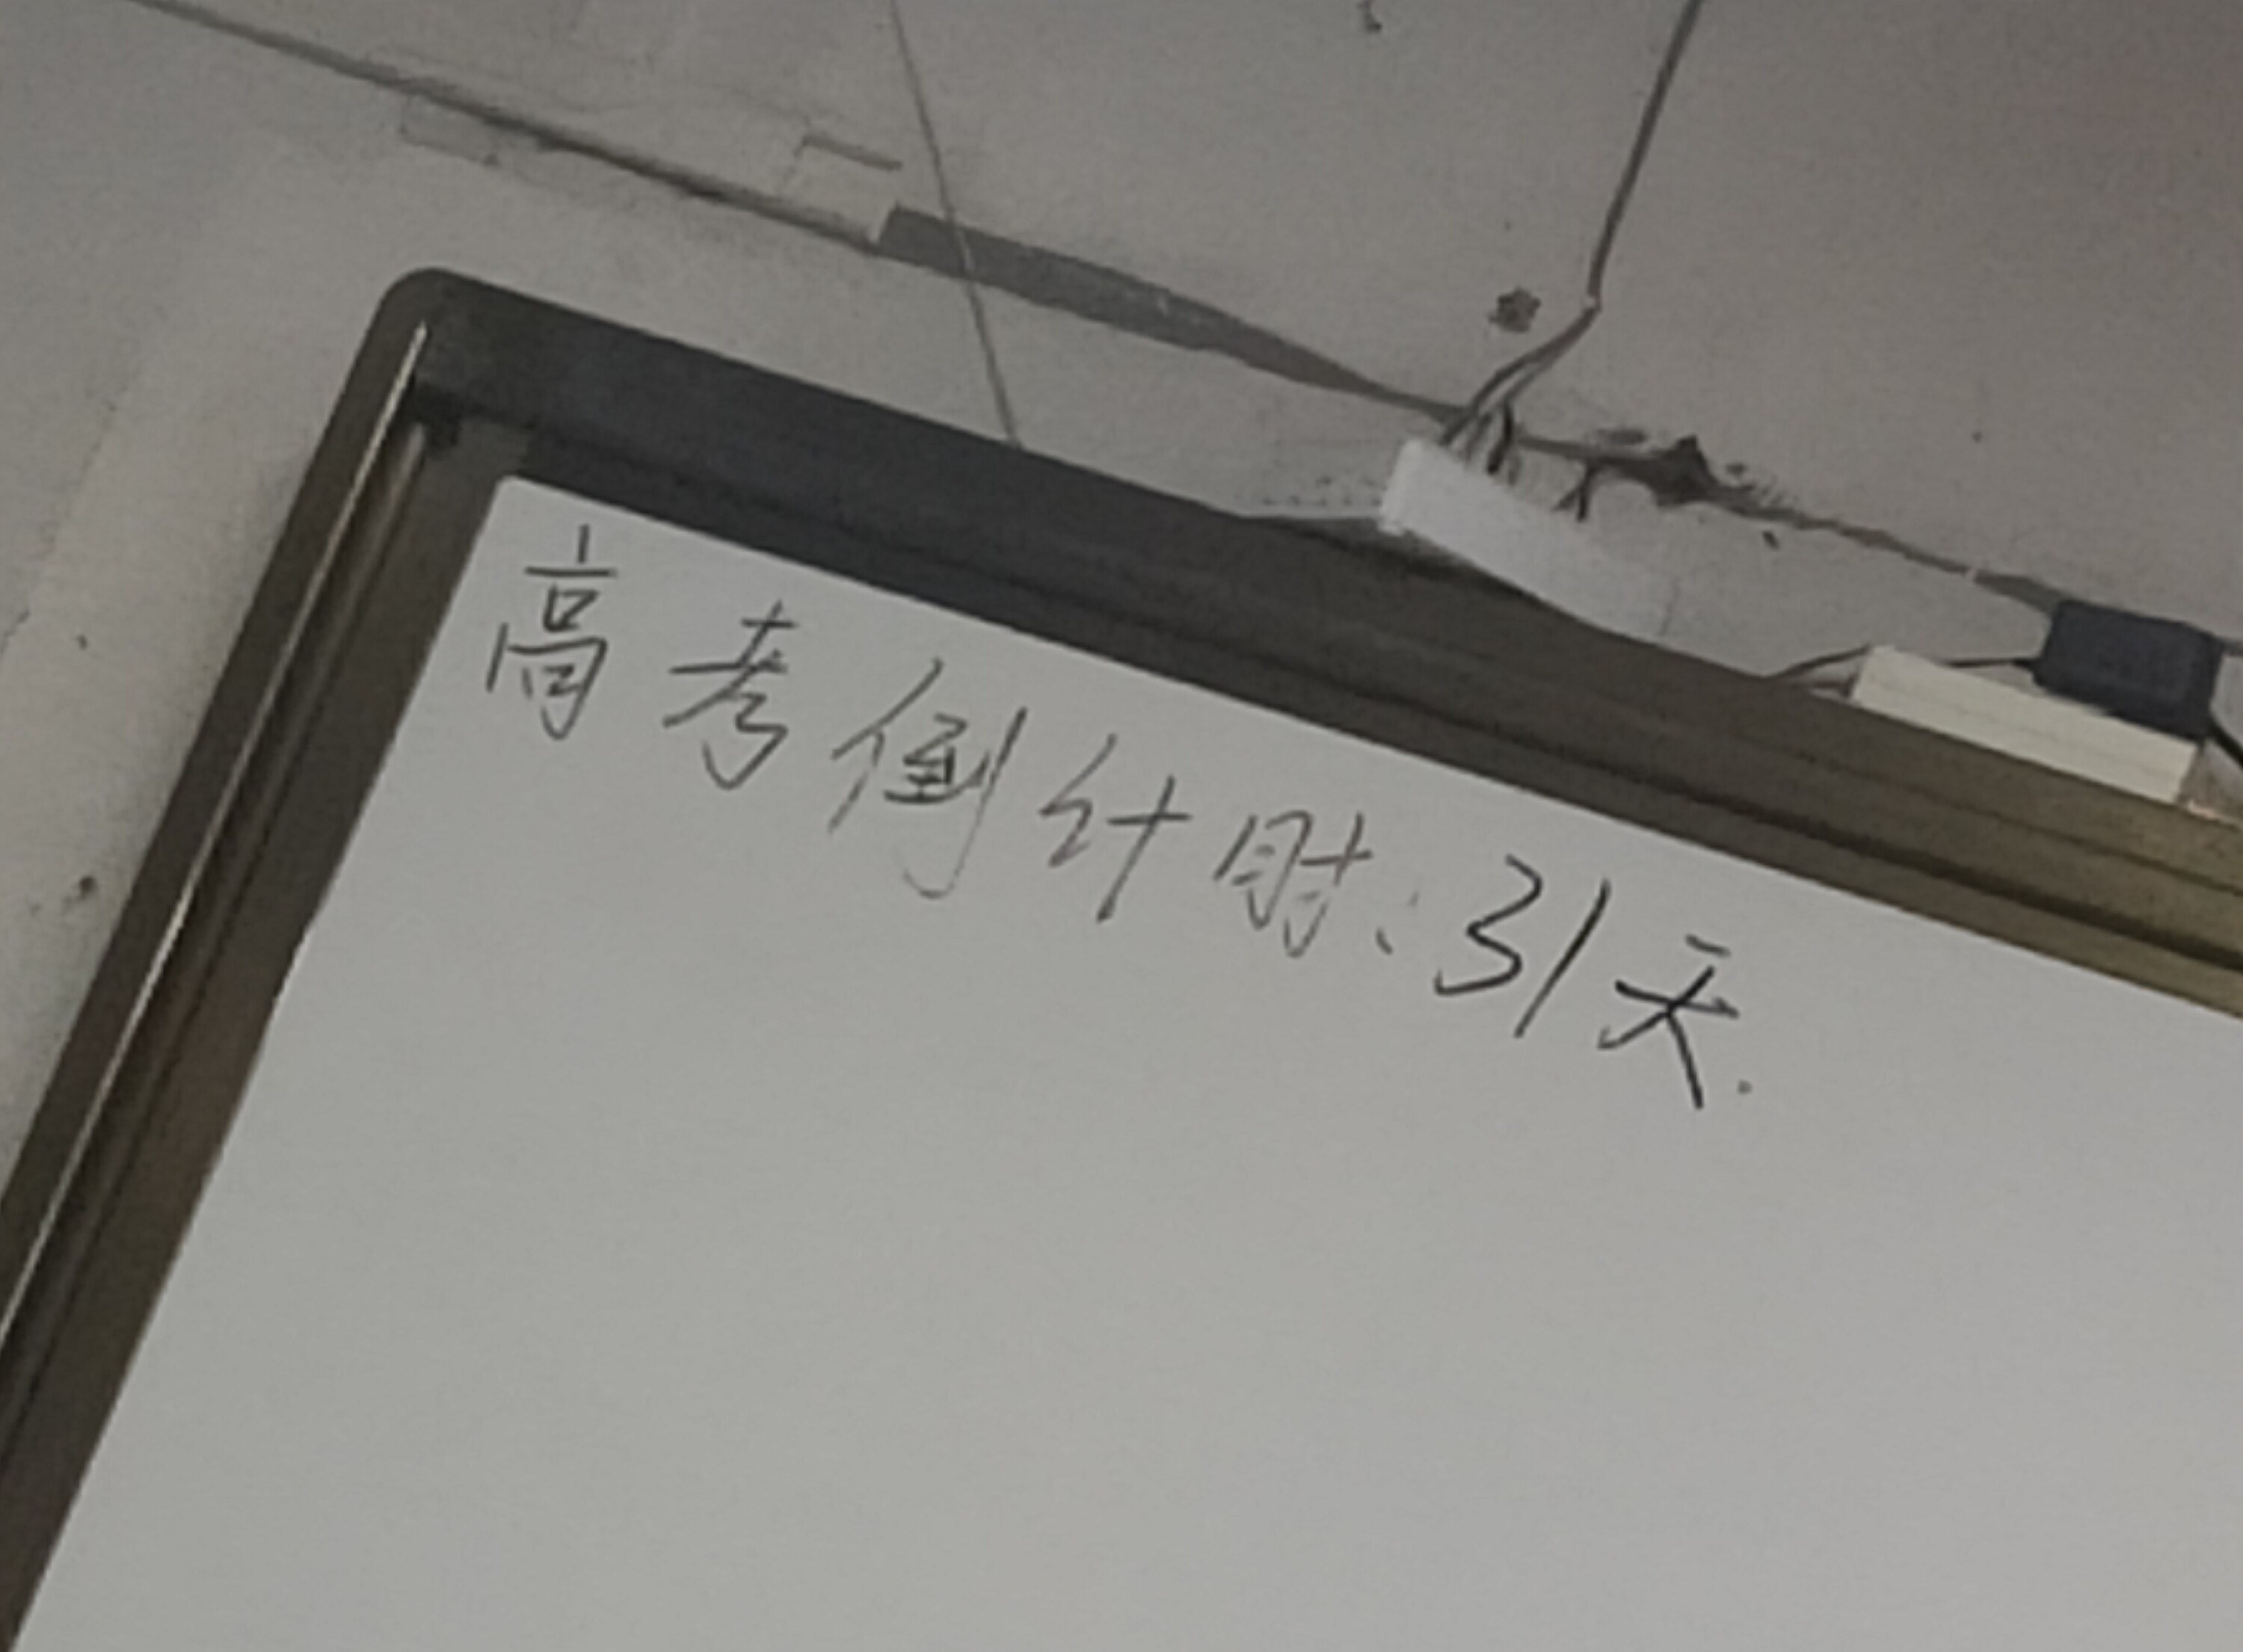 高考倒计时:31天.